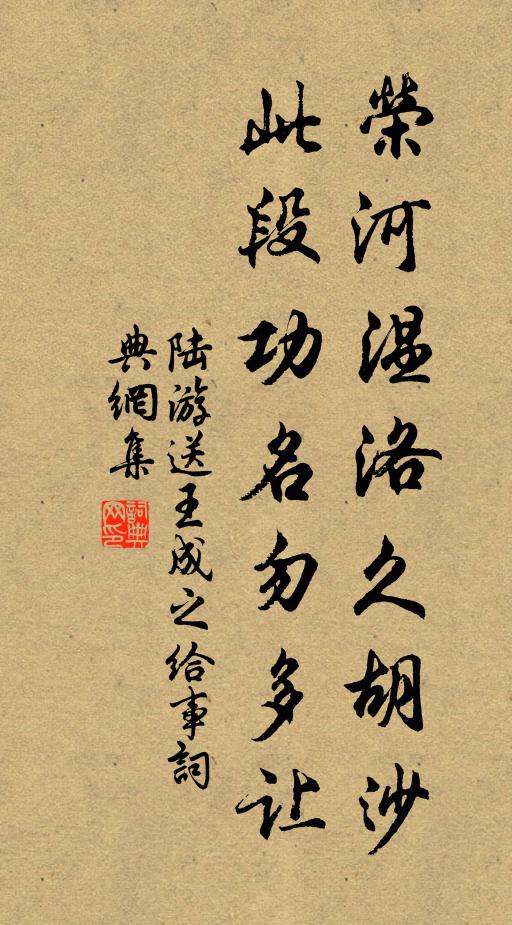 榮河温洛久胡沙
此段功名勿多让
陆游送王成之给事詞
典網集
詞典網印